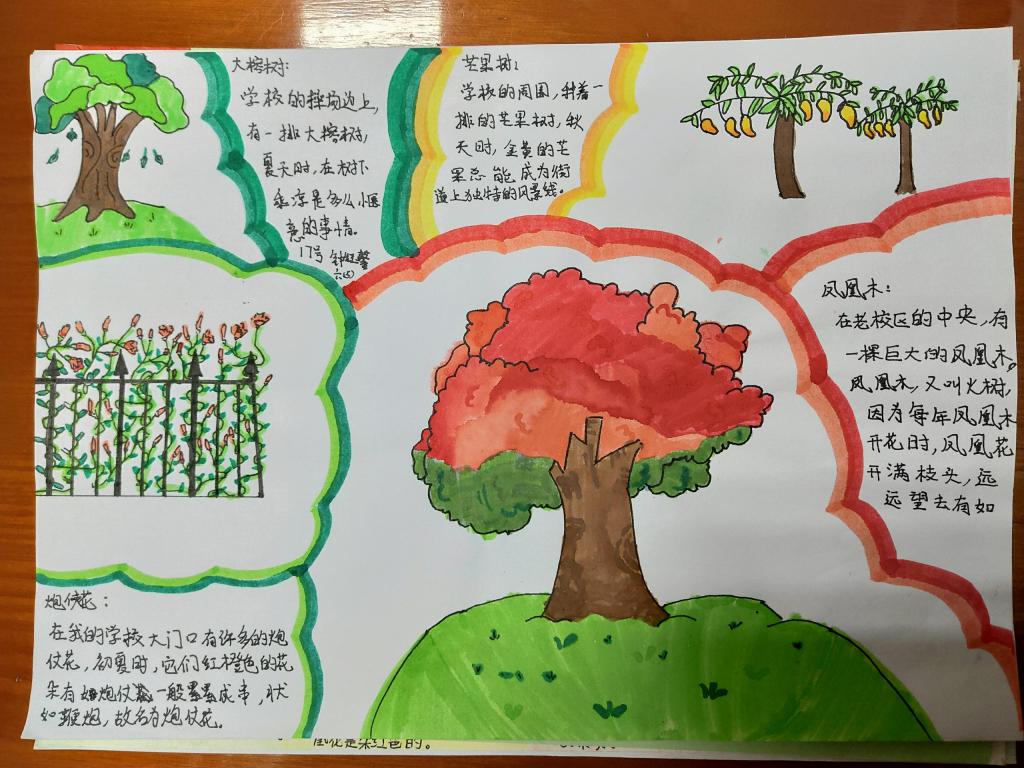 大榕树:
学校的操场边上,
有一排大榕树,
夏天时,在树下
乘凉是多么小惬
意的事情。
17号
六(2)
芒果树:
学校的周围,种着一
排的芒果树,秋
天时,金黄的芒
果总能成为街
道上独特的风景线。
凤凰木:
在老校区的中央,有
一棵巨大的凤凰木。
凤凰木,又叫火树,
因为每年凤凰木
开花时,凤凰花
开满枝头,远
远望去有如
炮仗花:
在我的学校大门口有许多的炮
仗花,初夏时,它们红橙色的花
朵有如炮仗 一般累累成串,状
如鞭炮,故名为炮仗花。
凰花是朱红色的。